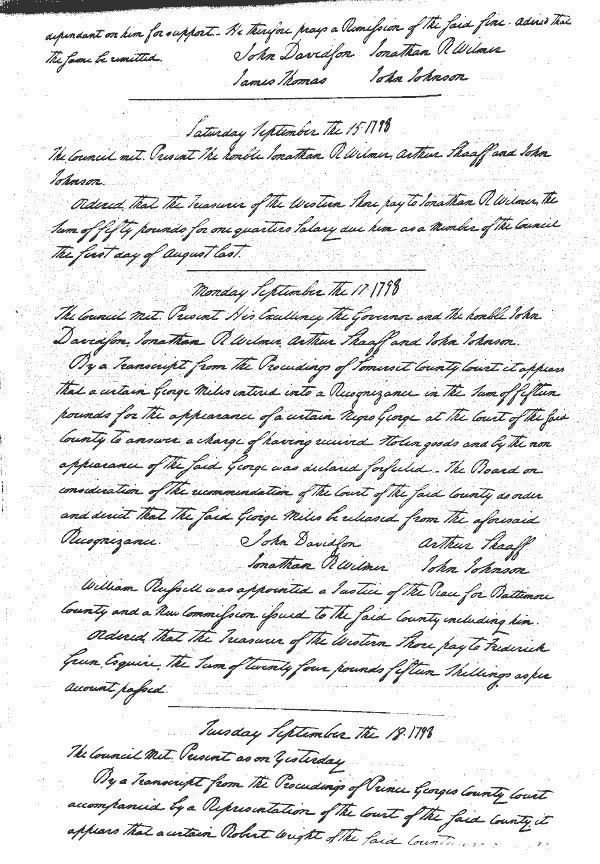 dependant on him for support_ He therefore prays a Remission of the said fine. Ordered that
the same be remitted.
John Davidson Jonathan R Wilmer
James Thomas John Johnson
Saturday September the 15 1798
The Council met. Present The honble Jonathan R Wilmer, Arthur Shaaff and John
Johnson.
Ordered, that the Treasurer of the Western Shore pay to Jonathan R Wilmer, the
Sum of fifty pounds for one quarters Salary due him as a Member of the Council
the first day of August last.
Monday September the 17 1798
The Council Met. Present His Excellency the Governor and the honble John
Davidson, Jonathan R Wilmer, Arthur Shaaff and John Johnson.
By a Transcript from the Proceedings of Somerset County Court it appears
that a certain George Miles entered into a Recognizance in the Sum of fifteen
pounds for the appearance of a certain Negro George at the Court of the said
County to answer a charge of having received stolen goods and by the non
appearance of the said George was declared forfeited_ The Board on
consideration of the recommendation of the Court of the said County do order
and direct that the said George Miles be released from the aforesaid
Recognizance.
John Davidson Arthur Shaaff
Jonathan R Wilmer John Johnson
William Russell was appointed a Justice of the Peace for Baltimore
County and a New Commission issued to the said County including him.
Ordered, that the Treasurer of the Western Shore pay to Frederick
Green, Esquire, the Sum of twenty four pounds fifteen Shillings as per
account passed.
Tuesday September the 18. 1798
The Council Met. Present as on Yesterday
By a Transcript from the Proceedings of Prince Georges County Court
accompanied by a Representation of the Court of the said County it
appears that a certain Robert Wright of the said County